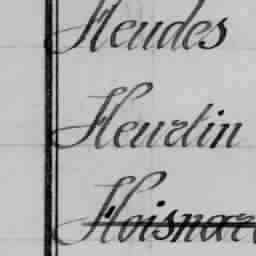 Heudes
Heurtin
Hoisnar